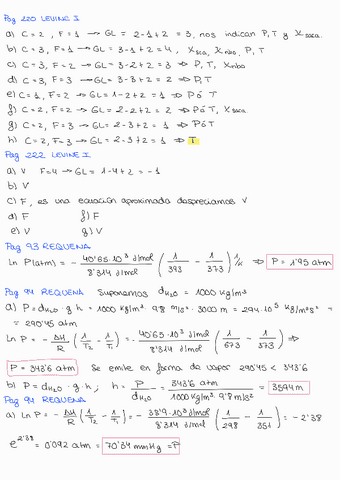 Pag 220 LEVINE I
a) C = 2 , F = 1 → GL = 2-1+2 = 3, nos indican P, T y Xsaca.
b) C = 3, F=1 → GL = 3-1+2 = 4 , Xsaca, Xriba, P, T
c) C = 3, F=2 → GL = 3-2+2 = 3 ⇒ P, T, Xriba
d) C = 3, F=3 → GL = 3-3+2 = 2 ⇒ P, T
e) C = 1, F=2 → GL = 1-2+2 = 1 ⇒ P ó T
f) C = 2, F=2 → GL = 2-2+2 = 2 ⇒ P ó T, Xsaca
g) C = 2, F=3 → GL = 2-3+2 = 1 ⇒ P ó T
h) C = 2, F=3 → GL = 2-3+2 = 1 ⇒ T
Pag 222 LEVINE I
a) V F=4 → GL = 1-4+2 = -1
b) V
c) F , es una ecuación aproximada despreciamos V
d) F f) F
e) V g) V
Pag 93 REQUENA
Ln P(atm) = - 40'65·10³ J/mol / 8'314 J/mol ( 1/393 - 1/373 ) 1/K ⇒ P = 1'95 atm
Pag 94 REQUENA Suponemos dH₂O = 1000 kg/m³
a) P = dH₂O · g · h = 1000 kg/m³ · 9'8 m/s² · 3000 m = 294·10⁵ kg/m·s² →
= 290'45 atm
Ln P = - ΔH/R ( 1/T₂ - 1/T₁ ) = - 40'65·10³ J/mol / 8'314 J/mol ( 1/673 - 1/373 ) ⇒
P = 343'6 atm Se emite en forma de vapor 290'45 < 343'6
b) P = dH₂O · g · h ; h = P / dH₂O · g = 343'6 atm / 1000 kg/m³ · 9'8 m/s² = 3594 m
Pag 94 REQUENA
a) Ln P = - ΔH/R ( 1/T₂ - 1/T₁ ) = - 38'9·10³ J/mol / 8'314 J/mol ( 1/298 - 1/351 ) = -2'38
e^2'38 = 0'092 atm = 70'34 mmHg = P